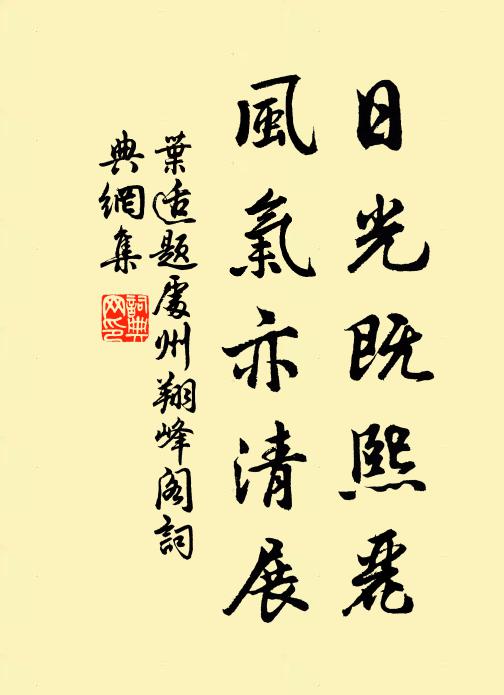 日光既熙麗
風氣亦清展
葉适題處州翔峰阁詞
典網集
詞典网印